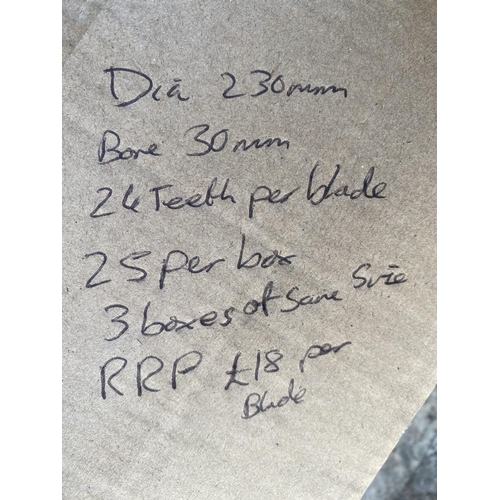 Dia 230mm
Bore 30mm
24 Teeth per blade
25 per box
3 boxes of same size
RRP £18 per
Blade